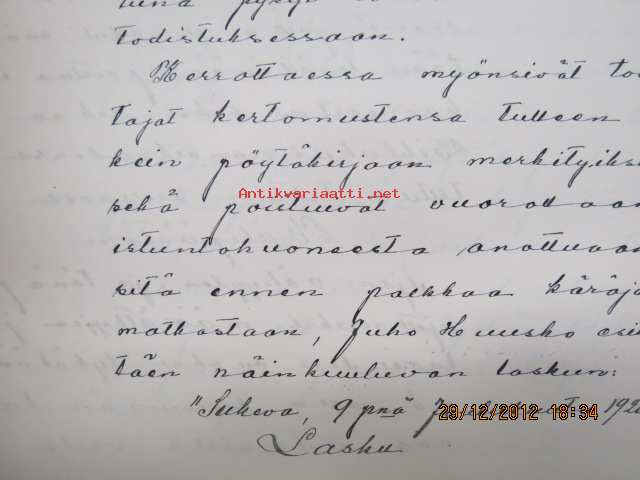 pysyi
todistuksessaan.
Kerrottaessa myönsivät to
tajat kertomustensa tulleen
kein pöytäkirjaan merkityiks
Antikvariaatti.net
sekä poistuivat vuorottaan
istuntohuoneesta anottuaan
sitä ennen palkkaa käräjä
matkastaan, Juho Huusko esi
täen näinkuuluvan laskun:
"Sukeva, 9 pnä 192
29/12/2012 18:34
Lasku